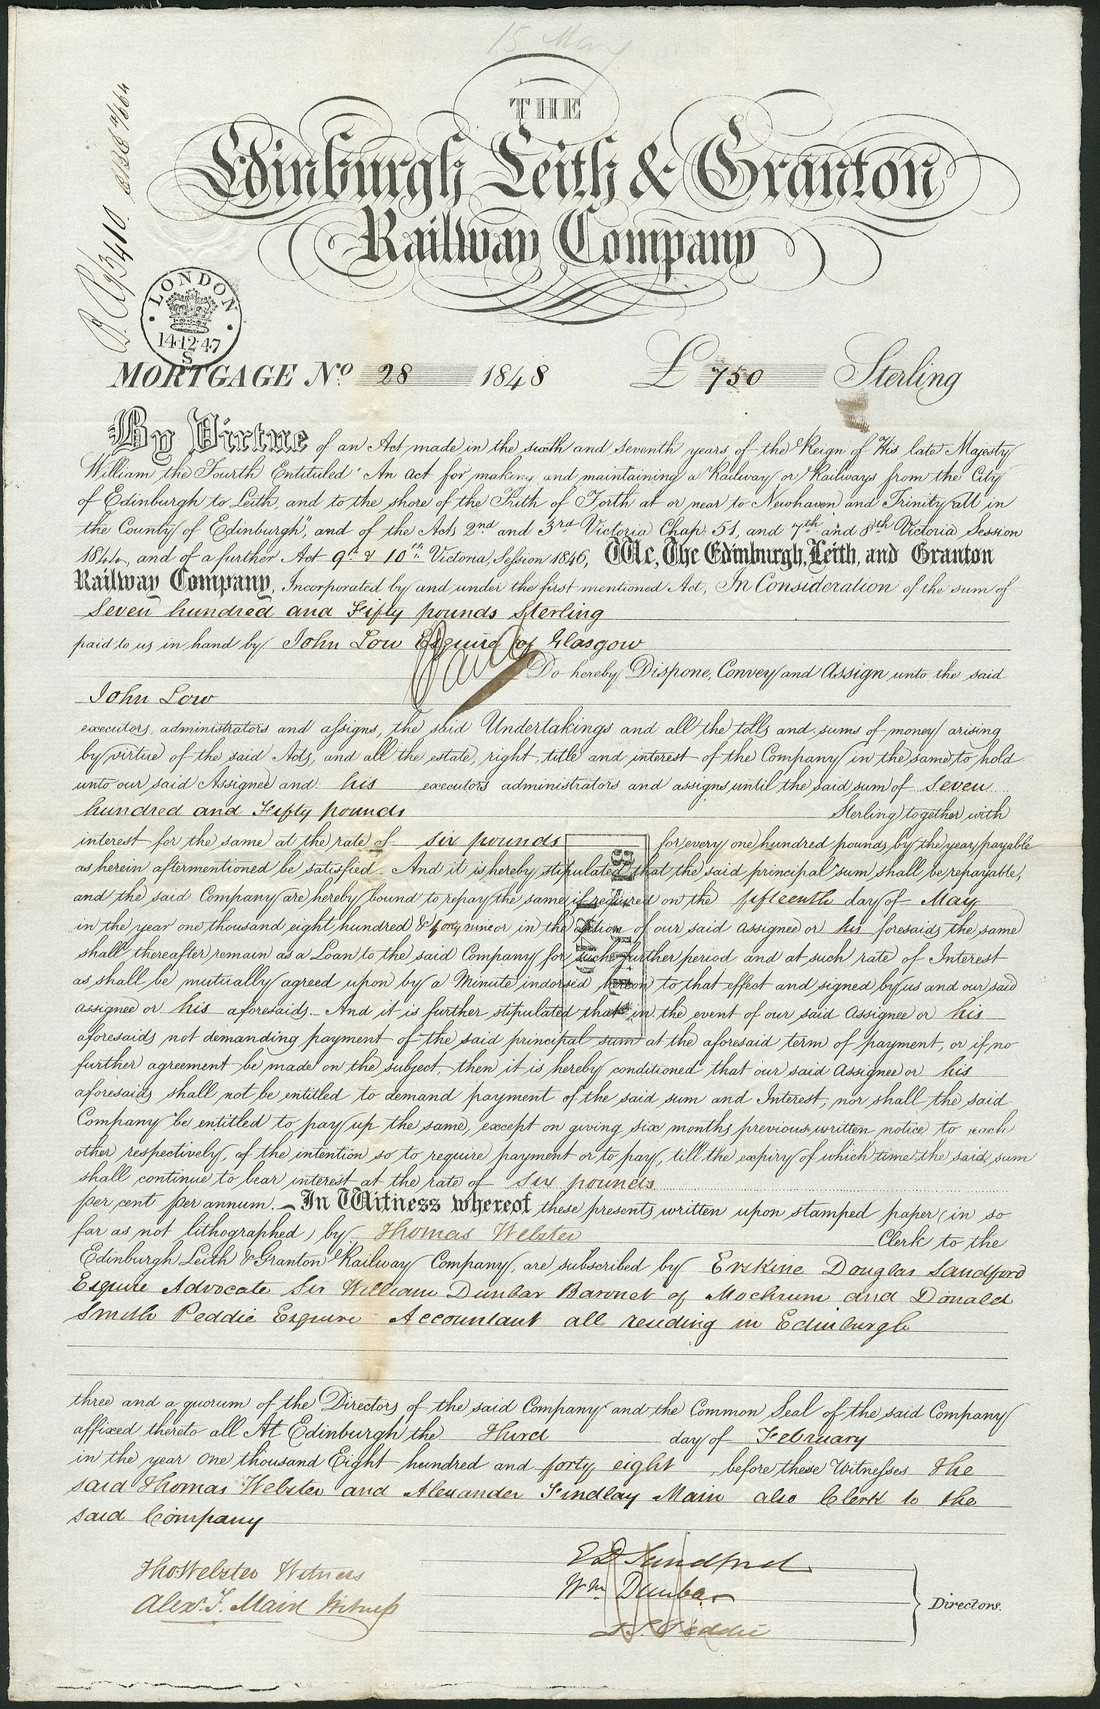 15 May
THE
Edinburgh Leith & Granton
Railway Company
LONDON
14·12·47
S
MORTGAGE No 28 1848 £ 750 Sterling
By Virtue of an Act made in the sixth and seventh years of the Reign of His late Majesty
William the Fourth Entituled "An act for making and maintaining a Railway or Railways from the City
of Edinburgh to Leith, and to the shore of the Frith of Forth at or near to Newhaven and Trinity all in
the County of Edinburgh", and of the Acts 2nd and 3rd Victoria Chap. 51, and 7th and 8th Victoria Session
1844, and of a further Act 9th & 10th Victoria, Session 1846, We, The Edinburgh, Leith, and Granton
Railway Company, Incorporated by and under the first mentioned Act, In Consideration of the sum of
Seven hundred and Fifty pounds Sterling
paid to us in hand by John Low Esquire of Glasgow
Do hereby Dispone, Convey and Assign unto the said
John Low
executors, administrators and assigns, the said Undertakings and all the tolls and sums of money arising
by virtue of the said Acts, and all the estate, right, title and interest of the Company in the same to hold
unto our said Assignee and his executors administrators and assigns until the said sum of Seven
hundred and Fifty pounds Sterling together with
interest for the same at the rate of six pounds for every one hundred pounds by the year, payable
as herein aftermentioned be satisfied. And it is hereby stipulated that the said principal sum shall be repayable,
and the said Company are hereby bound to repay the same if required on the fifteenth day of May
in the year one thousand eight hundred & forty nine or in the option of our said assignee or his foresaids the same
shall thereafter remain as a Loan to the said Company for such further period and at such rate of Interest
as shall be mutually agreed upon by a Minute indorsed hereon to that effect and signed by us and our said
assignee or his aforesaids. And it is further stipulated that in the event of our said Assignee or his
aforesaids not demanding payment of the said principal sum at the aforesaid term of payment, or if no
further agreement be made on the subject then it is hereby conditioned that our said Assignee or his
aforesaids shall not be entitled to demand payment of the said sum and Interest, nor shall the said
Company be entitled to pay up the same, except on giving six months previous written notice to each
other respectively, of the intention so to require payment or to pay, till the expiry of which time the said sum
shall continue to bear interest at the rate of six pounds
per cent per annum. — In Witness whereof these presents written upon stamped paper (in so
far as not lithographed) by Thomas Webster Clerk to the
Edinburgh Leith & Granton Railway Company, are subscribed by Erskine Douglas Sandford
Esquire Advocate Sir William Dunbar Baronet of Mochrum and Donald
Smith Peddie Esquire Accountant all residing in Edinburgh
three and a quorum of the Directors of the said Company and the Common Seal of the said Company
affixed thereto all At Edinburgh the Third day of February
in the year one thousand Eight hundred and forty eight, before these Witnesses the
said Thomas Webster and Alexander Findlay Main also Clerk to the
said Company
Tho Webster Witness
Alexr. F. Main Witness
E D Sandford
Wm Dunbar
D. S. Peddie
Directors.